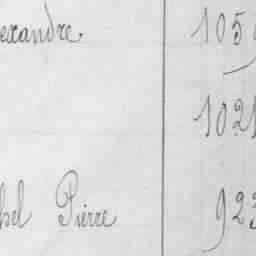 exandre. 105
1021
hel Pierre 923